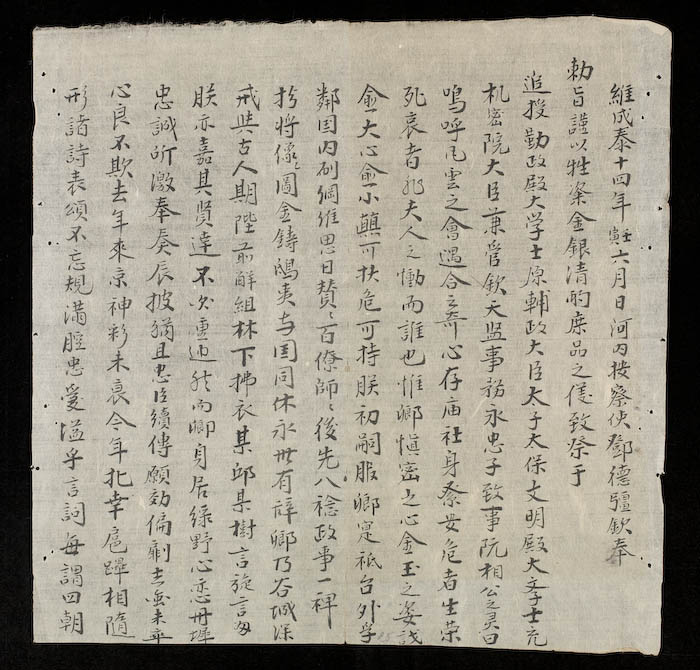 維成泰十四年壬寅六月日河内按察使鄧德彊欽奉
勅旨謹以牲粢金銀清酌庶品之儀致祭于
追授勤政殿大学士原輔政大臣太子太保文明殿大学士充
机密院大臣兼管欽天監事務永忠子致事阮相公之灵曰
嗚呼风雲之會遇合之奇心存庙社身系安危者生荣
死哀者非夫人之慟而誰也惟卿慎密之心金玉之姿
俞大心俞小顛可扶危可持朕初嗣服卿寔祗台外孚
鄰囯内刷綢維思日賛〻百僚師〻後先八稔政事一裨
将像〻圖金鋳鴟夷与囯同休永世有辞卿乃谷城深
戒與古人期陛前觧組林下拂衣某邱某樹言旋言
朕亦嘉其賢達不必重迫然而卿身居綠野心恋丹墀
忠誠所激奉奏辰披猶且忠臣續傳願効偏
心良不欺去年來京神彩未衰今年北幸扈蹕相隨
形諸詩表頌不忘規滿腔忠愛溢乎言詞每謂四朝